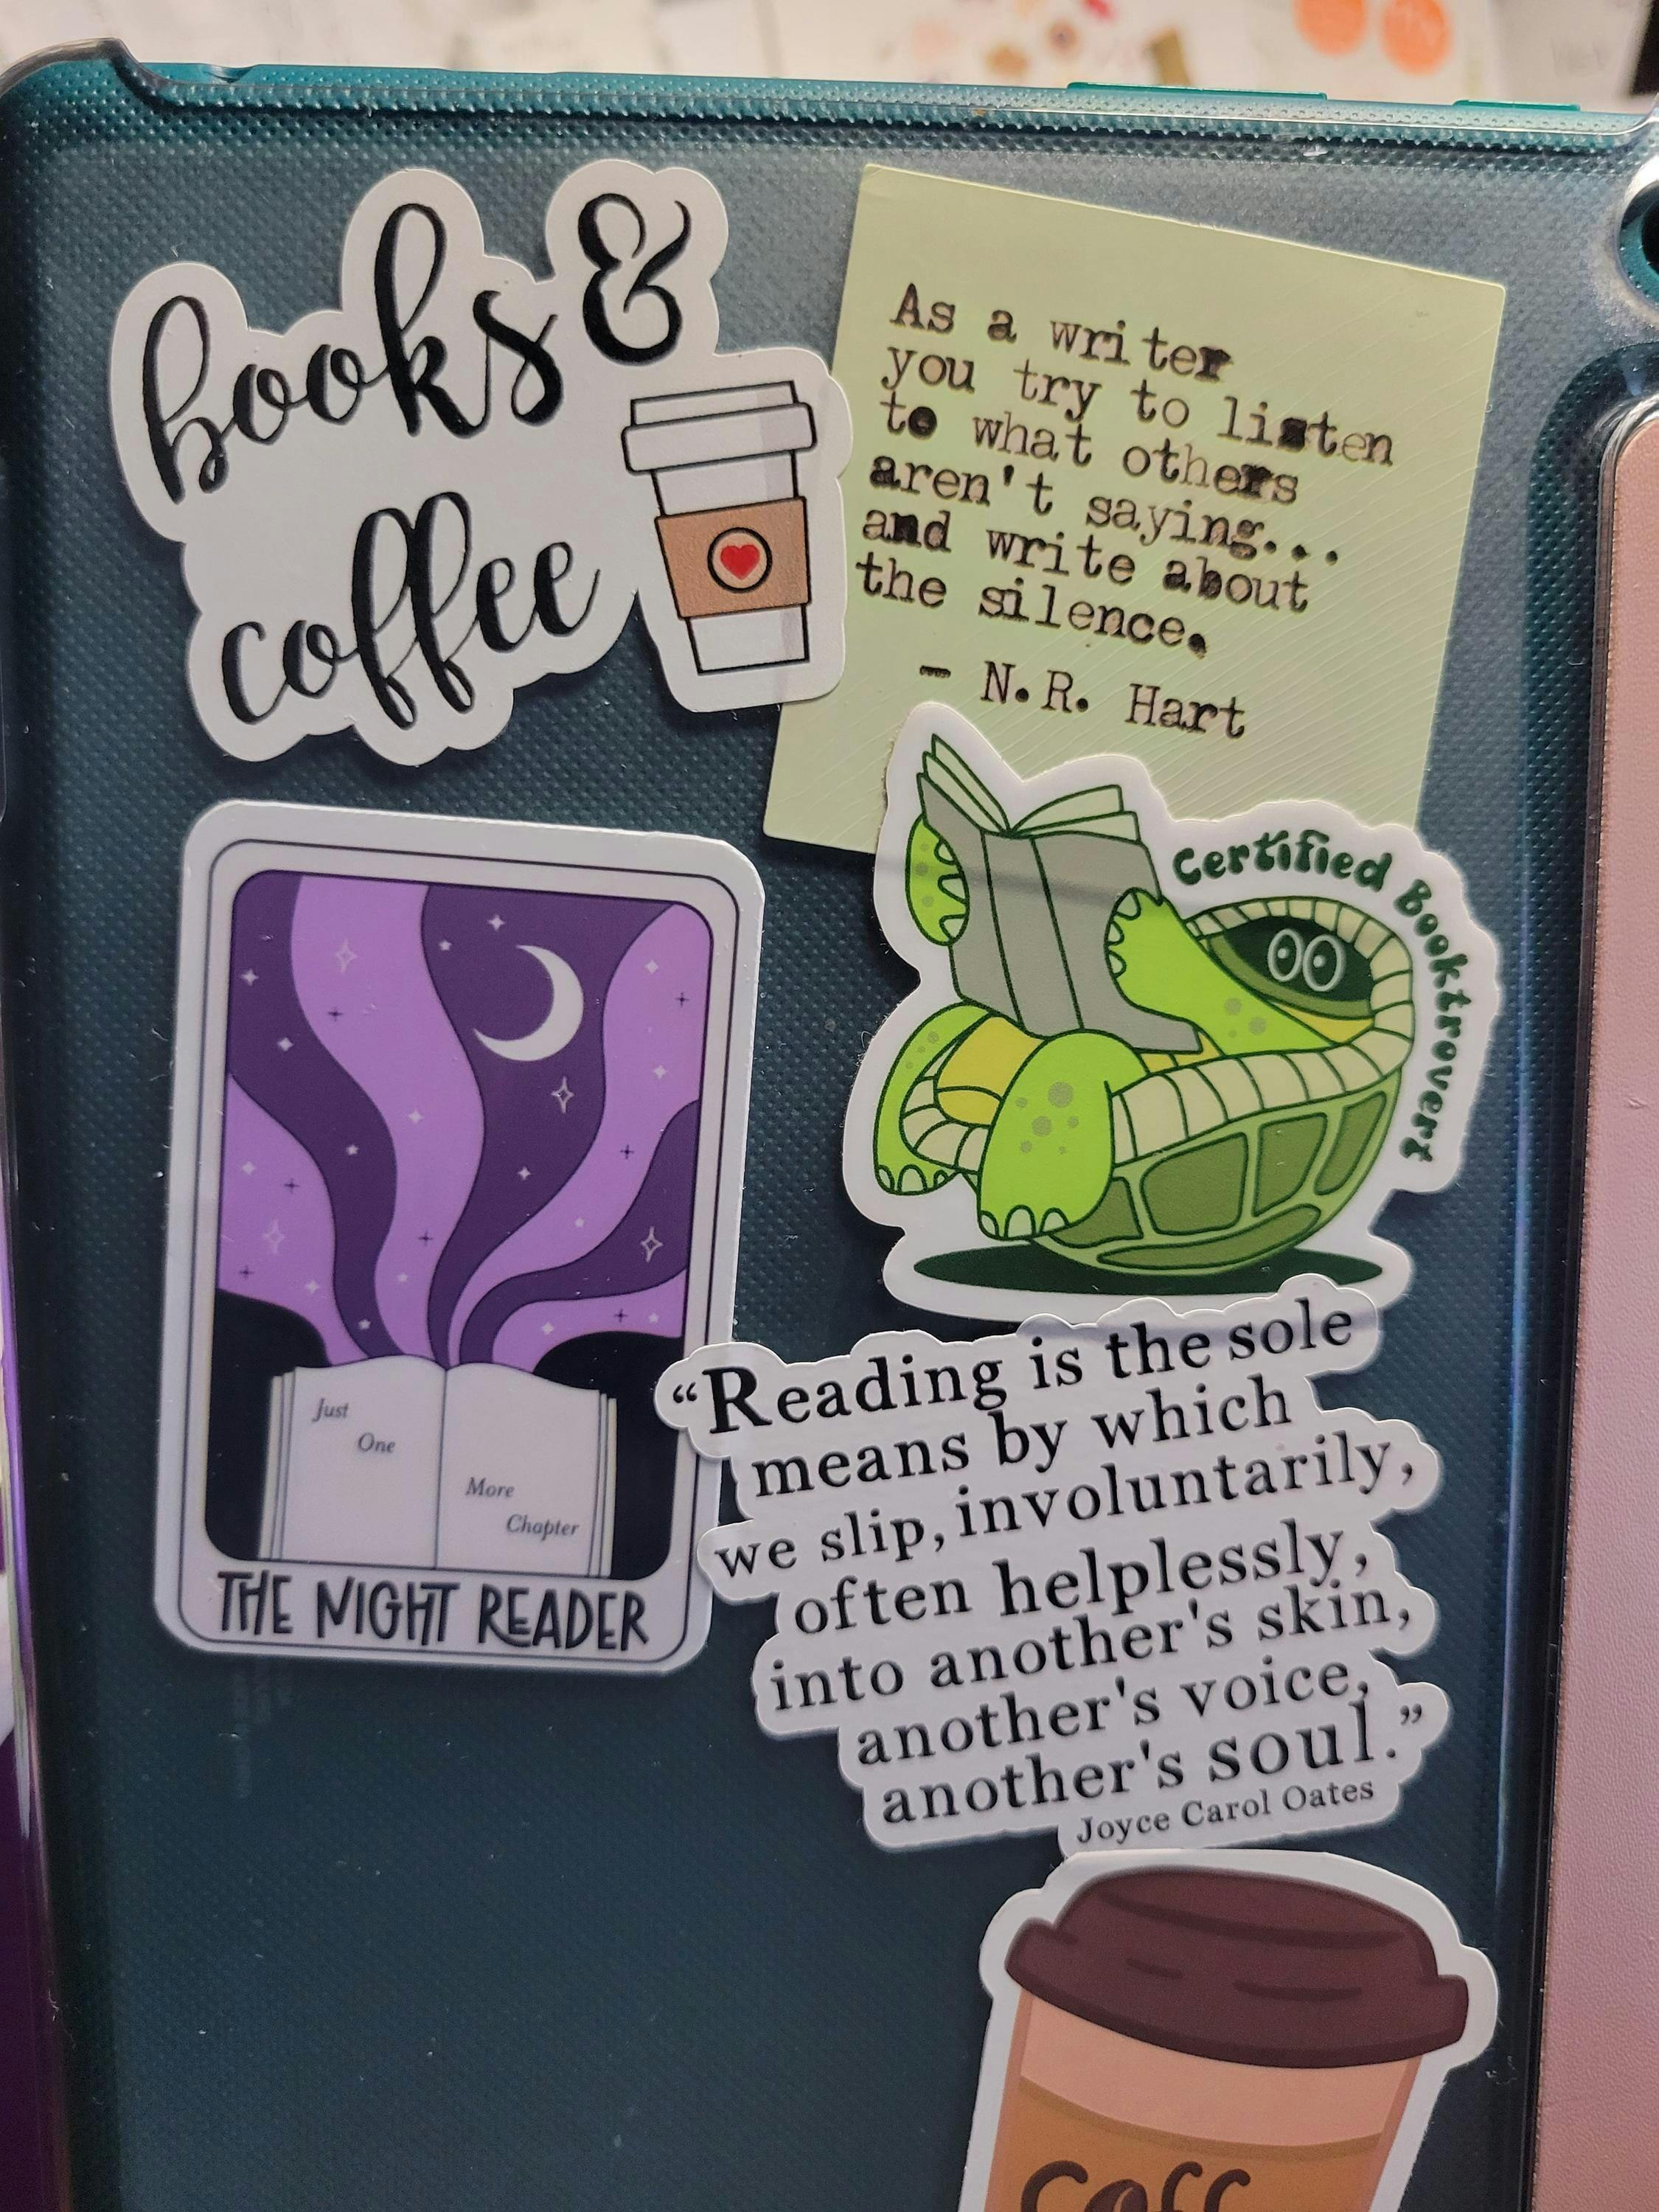 books &
coffee
As a writer
you try to listen
to what others
aren't saying...
and write about
the silence.
- N.R. Hart
Certified Booktrovert
Just
One
More
Chapter
THE NIGHT READER
“Reading is the sole
means by which
we slip, involuntarily,
often helplessly,
into another's skin,
another's voice,
another's soul.”
Joyce Carol Oates